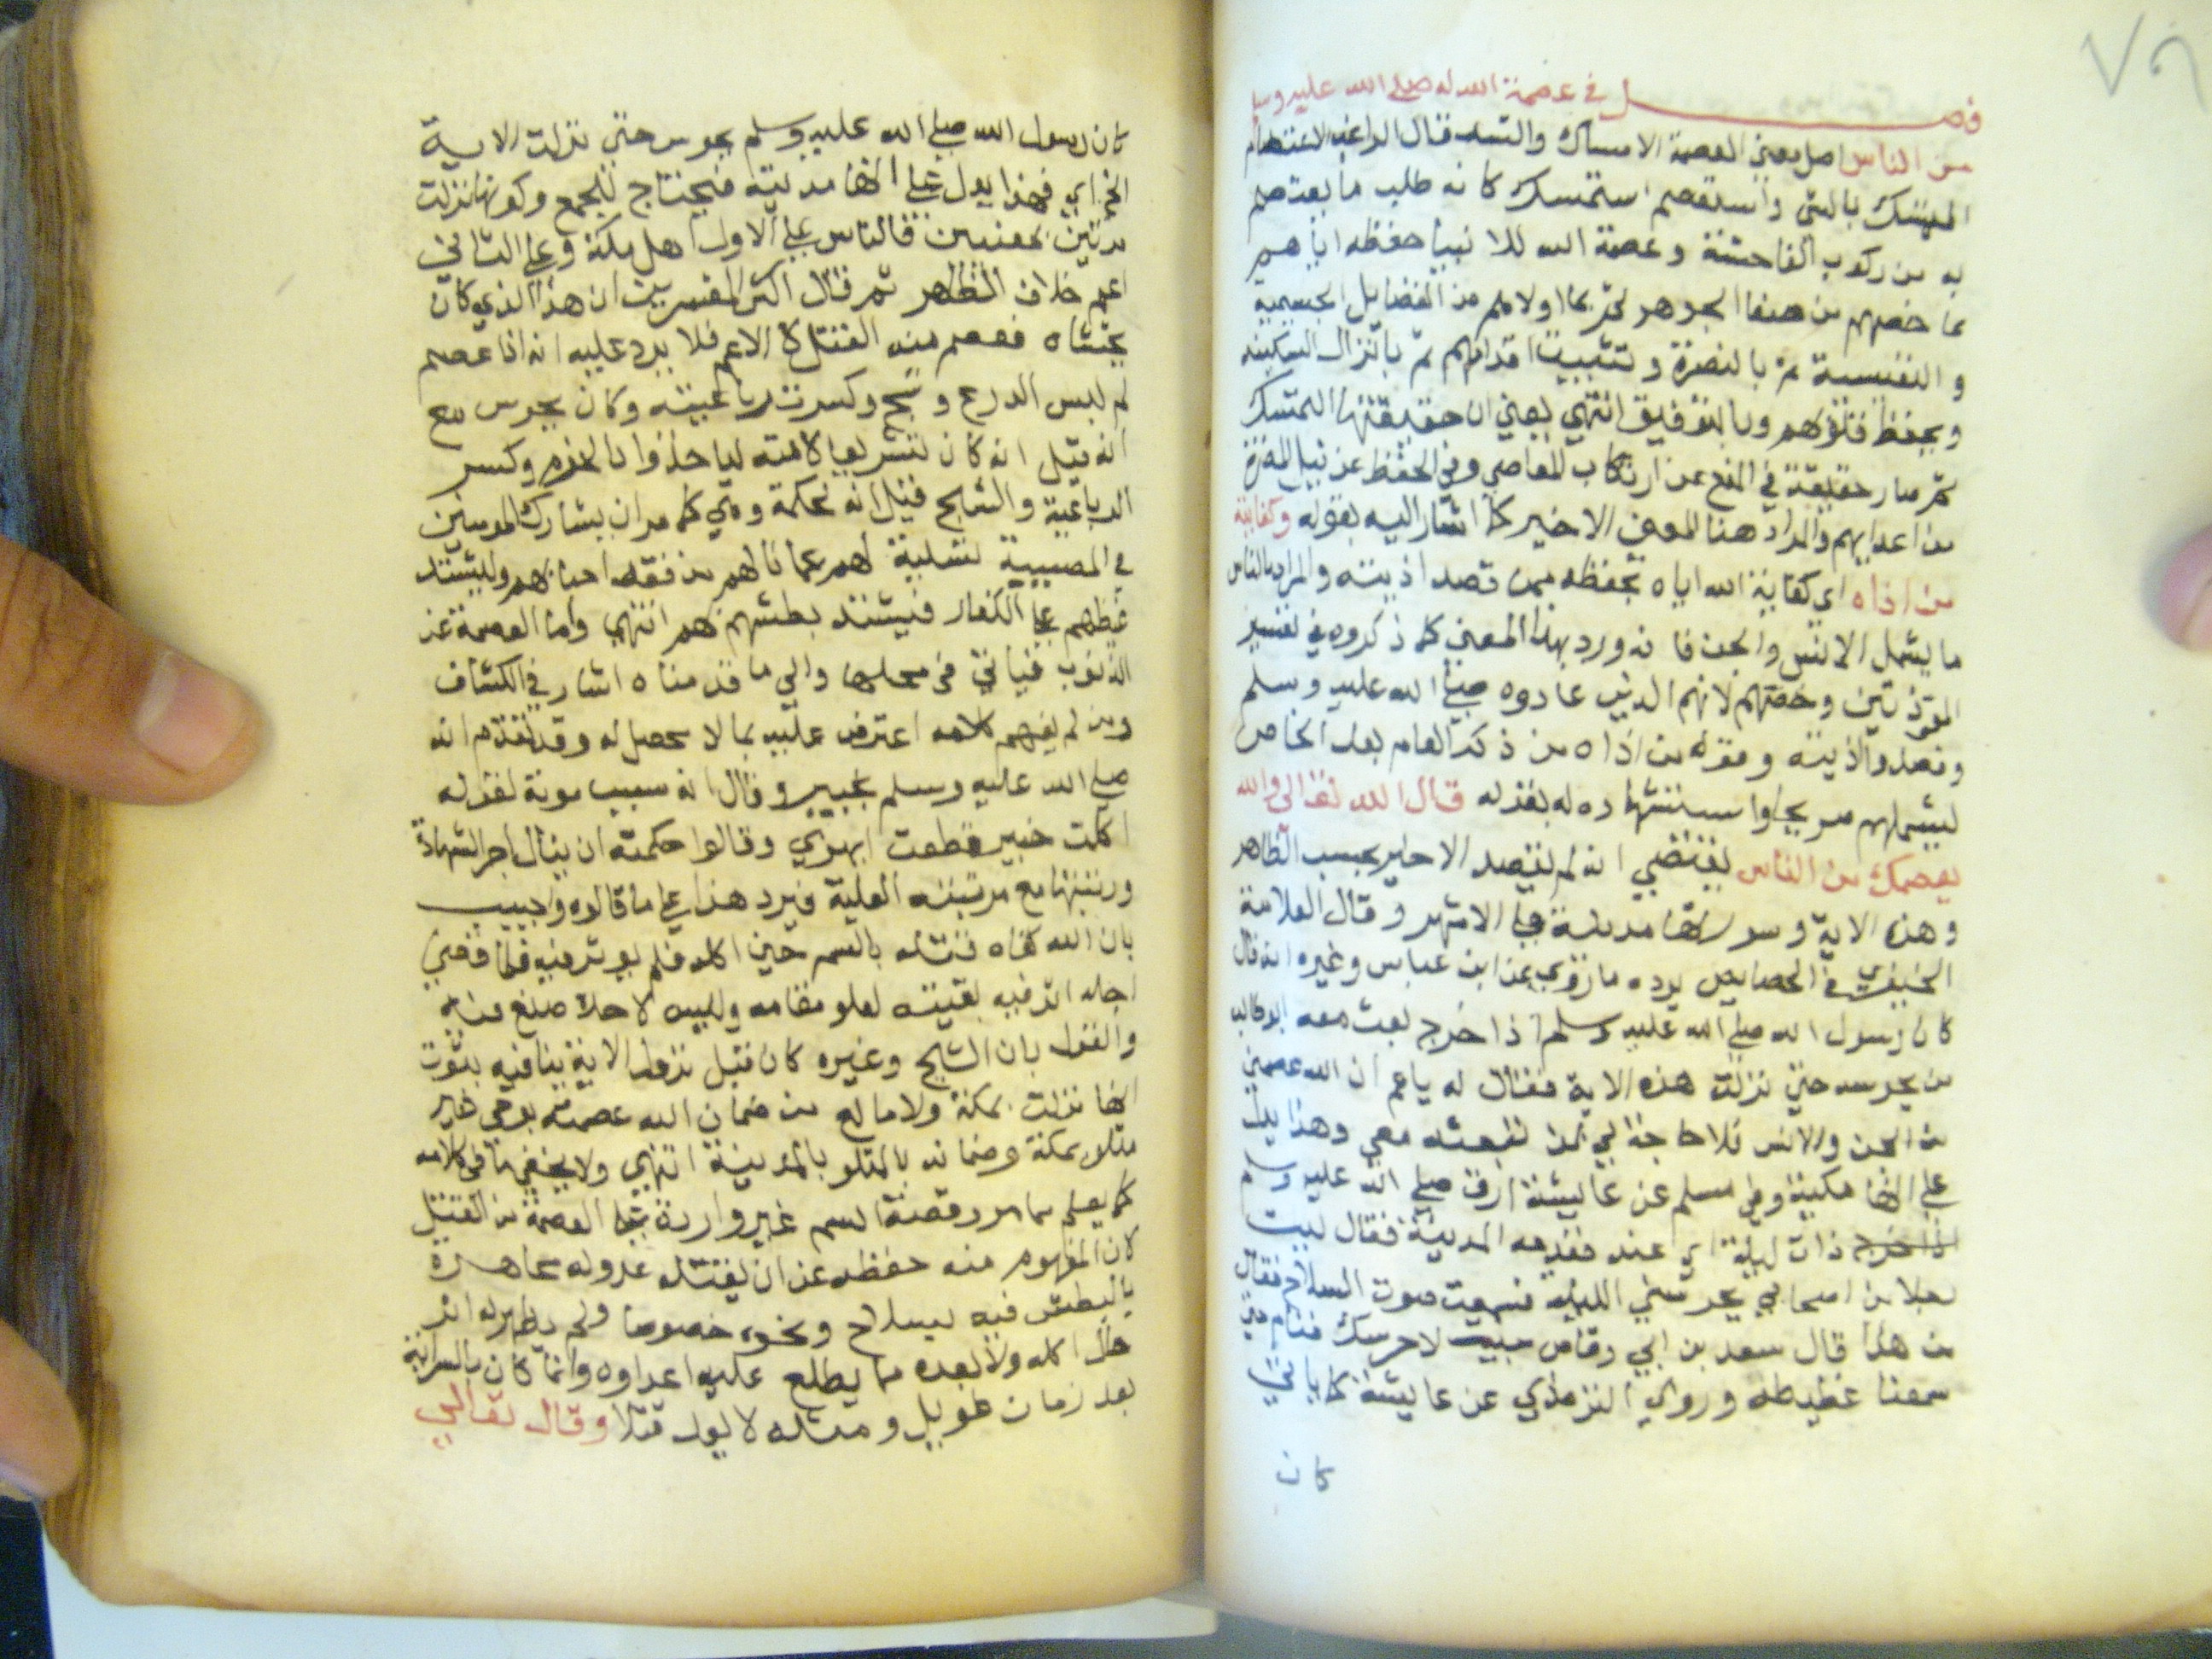 ٧٩
فصل في عصمة الله له صلي الله عليه وسلم
من الناس اصل معني العصمة الامساك والتسك قال الراغب الاعتصام
التمسك بالشي واستعصم استمسك كانه طلب ما يعتصم
به من ركوب الفاحشة وعصمة الله للانبيا حفظه اياهم
بما خصهم من صفا الجوهر ثم بما اولاهم من الفضايل الجسمية
والنفسية ثم بالنصرة وتثبيت اقدامهم ثم بانزال السكينه
وبحفظ قلوبهم وبالتوفيق انتهي يعني ان حقيقتها التمسك
ثم صار حقيقة في المنع عن ارتكاب المعاصي وفي الحفظ عن نيل المضرة
من اعدايهم والمراد هنا المعني الاخير كما اشار اليه بقوله وكفايته
من اذاه اي كفاية الله اياه بحفظه ممن قصد اذيته والمراد بالناس
ما يشمل الانس والجن فانه ورد بهذا المعني كما ذكروه في تفسير
المعوذتين وخصهم لانهم الذين عادوه صلي الله عليه وسلم
وقصدوا اذيته وقوله من اذاه من ذكر العام بعد الخاص
ليشملهم صريحا واستشهاده له بقوله قال الله تعالي والله
يعصمك من الناس يقتضي انه لم يقصد الاخير بحسب الظاهر
وهذه الاية وسورتها مدنية علي الاشهر وقال العلامة
الخيضري في الخصايص يرده ما روي عن ابن عباس وغيره انه قال
كان رسول الله صلي الله عليه وسلم اذا خرج بعث معه ابو طالب
من يحرسه حتي نزلت هذه الاية فقال له ياعم ان الله عصمني
من الجن والانس فلا حاجة لي بمن تبعثه معي وهذا يدل
علي انها مكية وفي مسلم عن عايشة ارق صلي الله عليه وسلم
ذات ليلة اي عند مقدمه المدينة فقال ليت
رجلا من اصحابي يحرسني الليلة فسمعت صوت السلاح فقال
من هذا قال سعد بن ابي وقاص جيت لاحرسك فنام حتي
سمعنا غطيطه وروي الترمذي عن عايشة كما ياتي
كان
كان رسول الله صلي الله عليه وسلم يحرس حتي نزلت الاية
الخ اي فهذا يدل علي انها مدنية فيحتاج للجمع وكونها نزلت
مرتين بمعنيين فالناس علي الاول اهل مكة وعلي الثاني
اعم خلاف الظاهر ثم قال اكثر المفسرين ان هذا الذي كان
يخشاه فعصم منه القتل لا الاعم فلا يرد عليه انه اذا عصم
لم لبس الدرع وشج وكسرت رباعيته وكان يحرس مع
انه قيل انه كان تشريعا لامته لياخذوا بالحزم وكسر
الرباعية والشج قيل انه لحكمة وهي كما مر ان يشارك المومنين
في المصيبة تسلية لهم عما نالهم من فقد احبابهم وليشتد
غيظهم علي الكفار فيشتد بطشهم بهم انتهي واما العصمة عن
الذنوب فياتي في محلها والي ما قدمناه اشار في الكشاف
ومن لم يفهم كلامه اعترض عليه بما لا محصل له وقد تقدم انه
صلي الله عليه وسلم بخيبر وقال انه سبب موته لقوله
اكلت خيبر قطعت ابهري وقالوا حكمته ان ينال اجر الشهادة
ورتبتها مع مرتبته العلية فيرد هذا علي ما قالوه واجيب
بان الله كفاه قتله بالسم حين اكله فلم يوثر فيه فلما قضي
اجله اثر فيه بقيته لعلو مقامه وليس لاحد صنع فيه
والقول بان الشج وغيره كان قبل نزول الاية ينافيه ثبوت
انها نزلت بمكة ولا مانع من ضمان الله عصمته بوحي غير
متلو بمكة وضمانه بالمتلو بالمدينة انتهي ولا يخفي ما في كلامه
كما يعلم مما مر وقصة السم غير واردة علي العصمة من القتل
لان المفهوم منه حفظه عن ان يقتله عدو له مجاهرة
بالبطش فيه بسلاح ونحوه خصوصا ولم يظهر له اثر
حال اكله ولا بعده مما يطلع عليه اعداوه وانما كان بالسراية
بعد زمان طويل ومثله لا يعد قتلا وقال تعالي